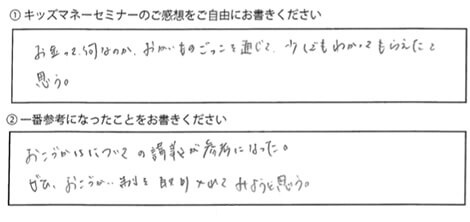 ① キッズマネーセミナーのご感想をご自由にお書きください
お金って何なのか、おかいものごっこを通じて、少しでもわかってもらえたと
思う。
② 一番参考になったことをお書きください
おこづかいについての講義が参考になった。
ぜひ、おこづかい制を取り入れてみようと思う。